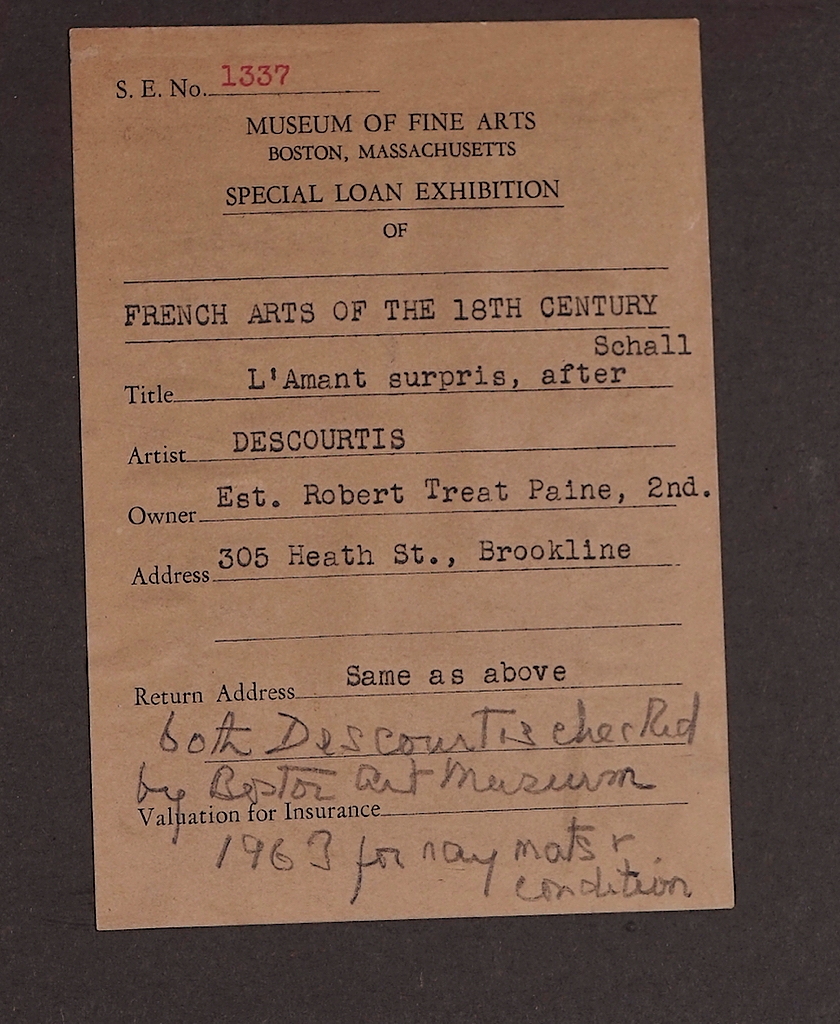 S. E. No. 1337
MUSEUM OF FINE ARTS
BOSTON, MASSACHUSETTS
SPECIAL LOAN EXHIBITION
OF
FRENCH ARTS OF THE 18TH CENTURY
Schall
Title L'Amant surpris, after
Artist DESCOURTIS
Owner Est. Robert Treat Paine, 2nd.
Address 305 Heath St., Brookline
Return Address Same as above
both Descourtis checked
by Boston Art Museum
Valuation for Insurance
1963 for rag mats &
condition